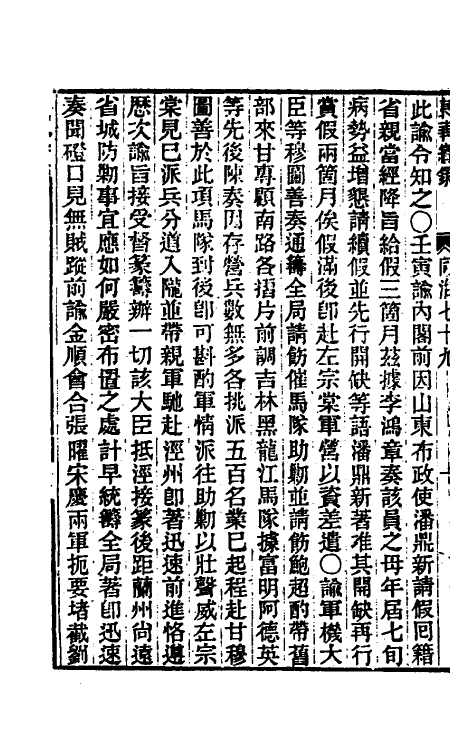 此諭令知之○壬寅諭內閣前因山東布政使潘鼎新請假回籍
省親當經降旨給假三箇月茲據李鴻章奏該員之母年屆七旬
病勢益增懇請續假並先行開缺等語潘鼎新著准其開缺再行
賞假兩箇月俟假滿後卽赴左宗棠軍營以資差遣○諭軍機大
臣等穆圖善奏通籌全局請飭催馬隊助勦並請飭鮑超酌帶舊
部來甘專顧南路各摺片前調吉林黑龍江馬隊據富明阿德英
等先後陳奏因存營兵數無多各挑派五百名業已起程赴甘穆
圖善於此項馬隊到後卽可斟酌軍情派往助勦以壯聲威左宗
棠見已派兵分道入隴並帶親軍馳赴涇州卽著迅速前進恪遵
歷次諭旨接受督篆籌辦一切該大臣抵涇接篆後距蘭州尚遠
省城防勦事宜應如何嚴密布置之處計早統籌全局著卽迅速
奏聞磴口見無賊蹤前諭金順會合張曜宋慶兩軍扼要堵截劉